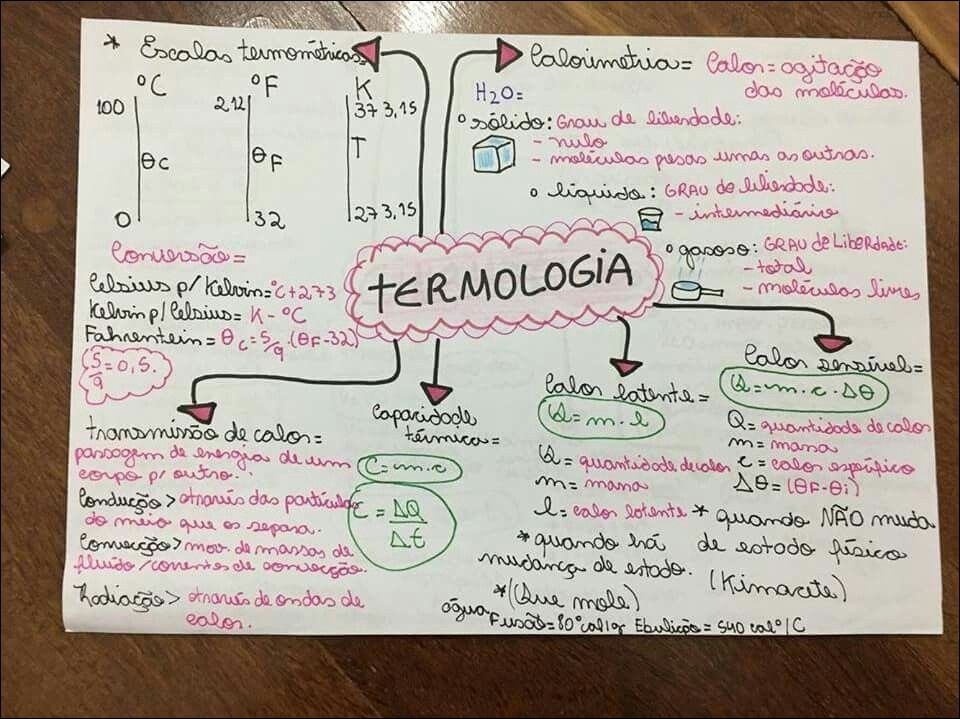 * Escalas termométricas=
°C °F K
100 212 373,15
θC θF T
0 32 273,15
Conversão=
Celsius p/ Kelvin=°C+273
Kelvin p/ Celsius= K-°C
Fahrentein= θC=5/9.(θF-32)
5/9=0,5.
Calorimetria= Calor=agitação
das moléculas.
H2O=
° sólido: Grau de liberdade:
- nulo
- moléculas pesas umas as outras.
° líquido: GRAU de liberdade:
- intermediário
° gasoso: GRAU de Liberdade:
- total
- moléculas livres
TERMOLOGIA
transmissão de calor=
passagem de energia de um
corpo p/ outro.
Condução> através das partículas
do meio que os separa.
Convecção> mov. de massas de
fluido/correntes de convecção.
Radiação> através de ondas de
calor.
Capacidade
térmica=
C=m.c
C=ΔQ/Δt
Calor latente=
Q=m.l
Q= quantidade de calor
m= massa
l= calor latente
*quando há
mudança de estado.
*(Que mole)
Calor sensível=
Q=m.c.Δθ
Q= quantidade de calor
m= massa
c= calor específico
Δθ=(θF-θi)
* quando NÃO muda
de estado físico
(Kimacete)
água Fusão=80°cal/g Ebulição=540 cal°/C